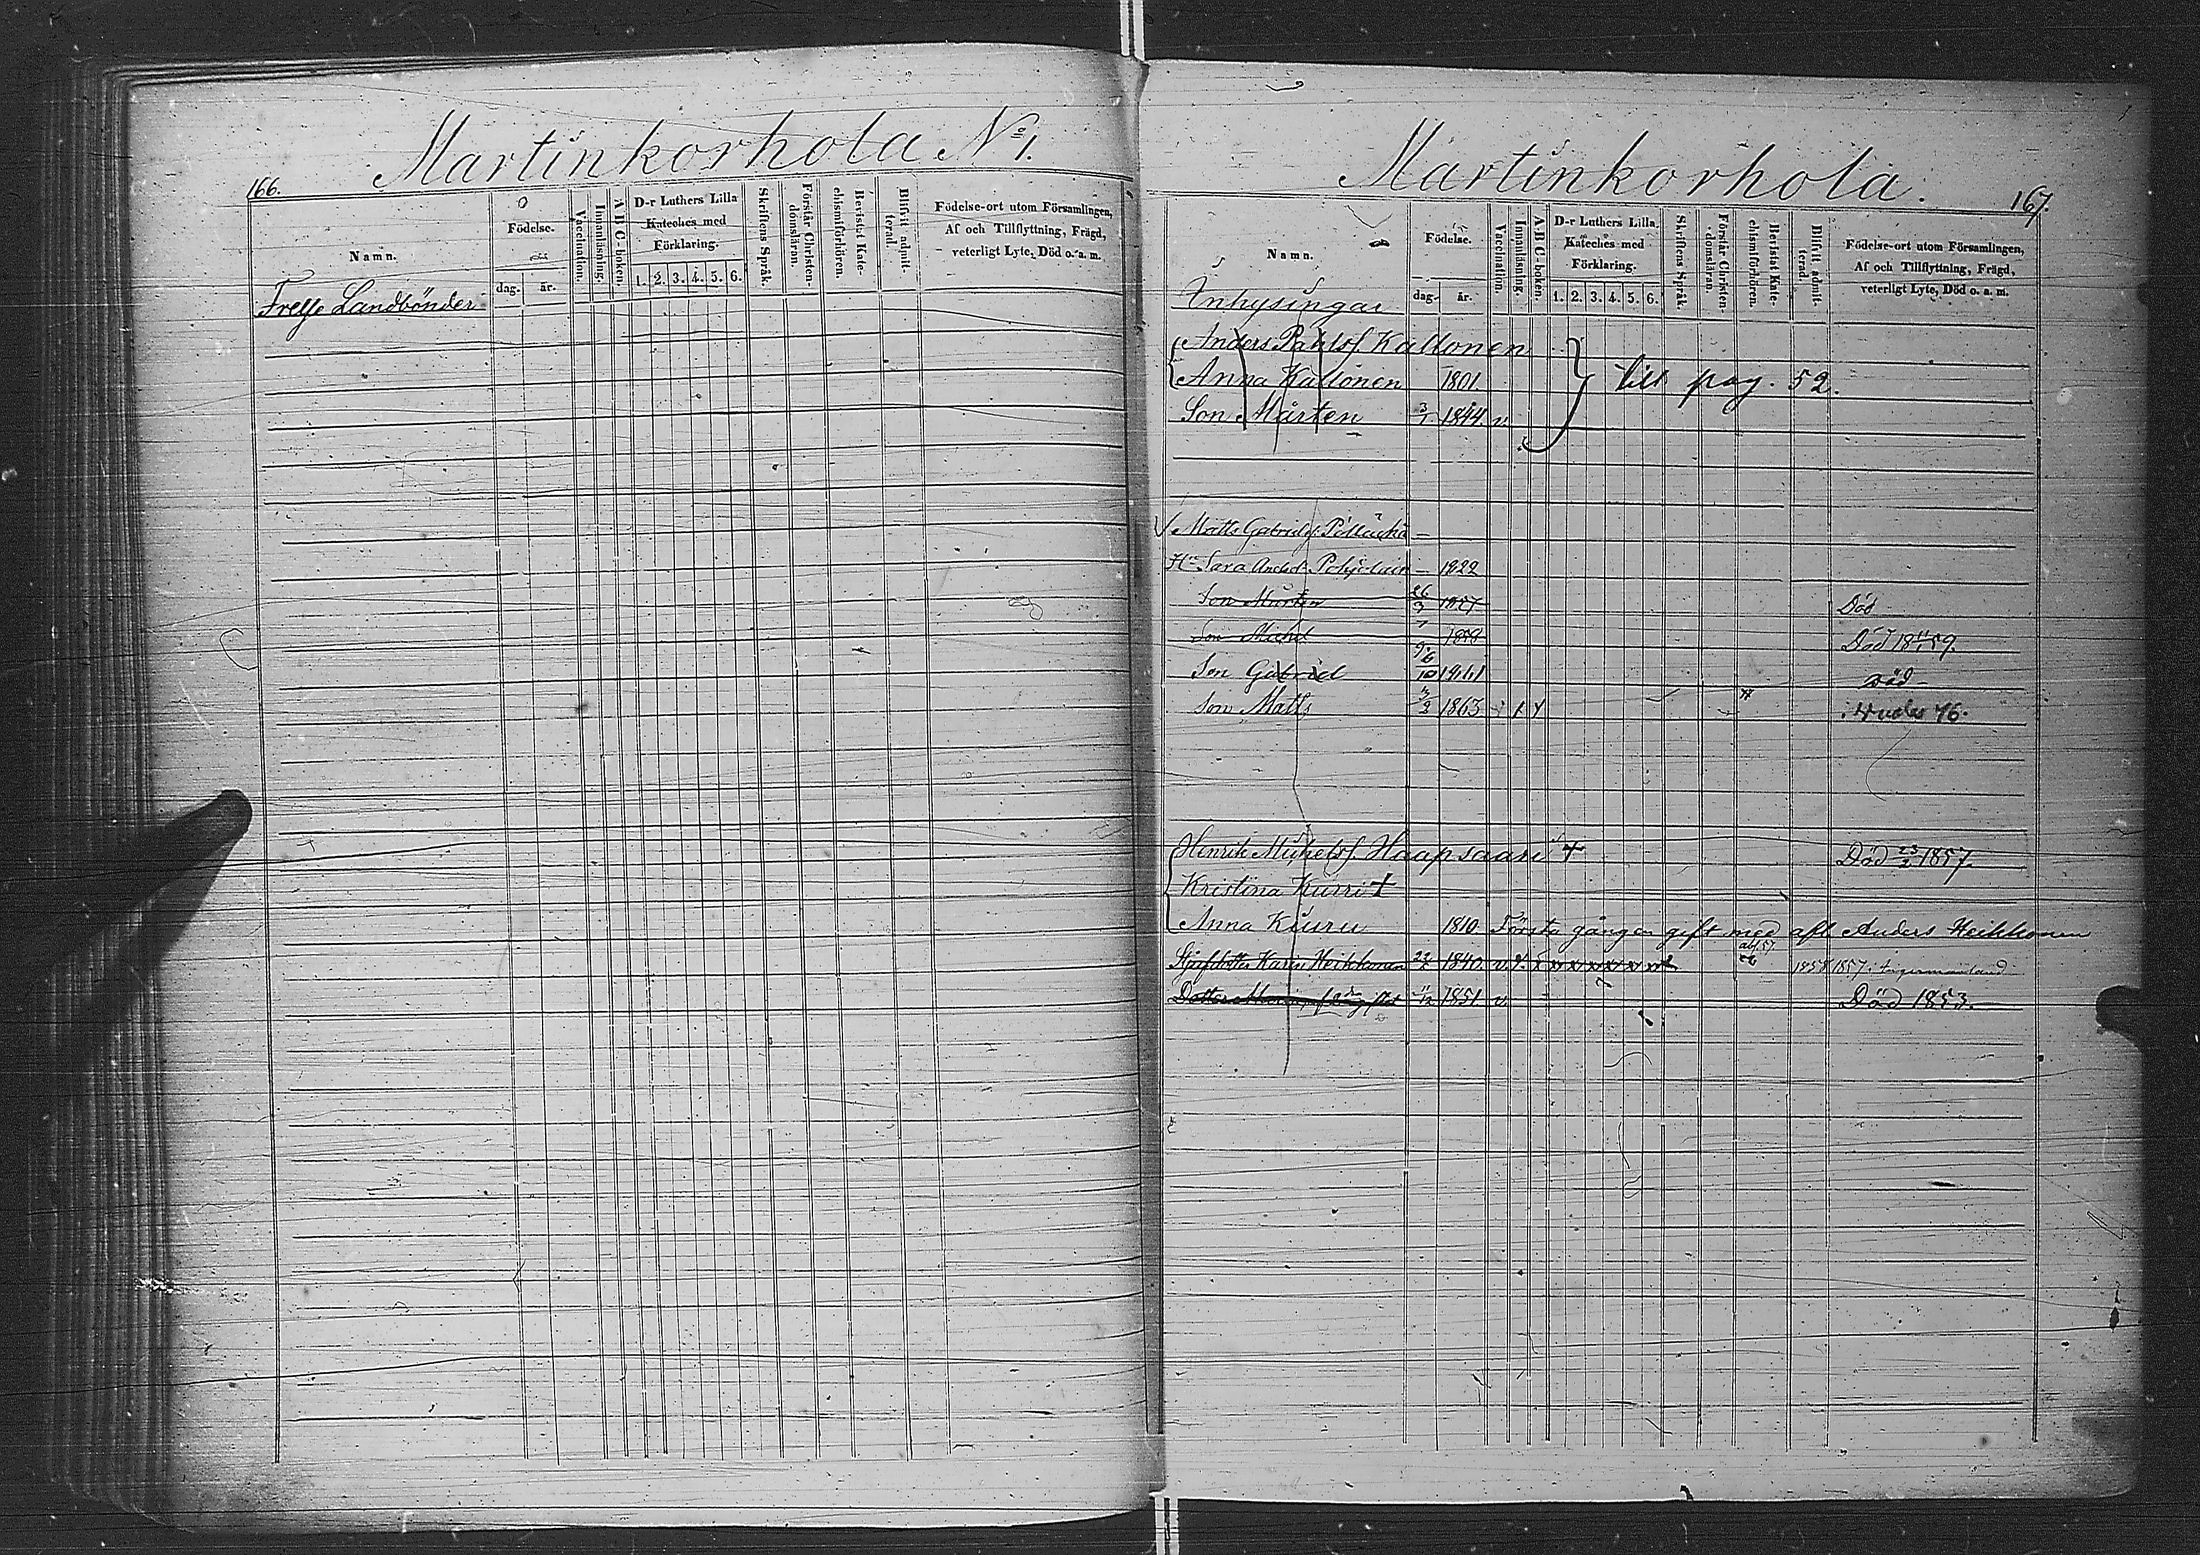 166.
Martinkorhola No 1.
Namn.
Födelse.
dag.
år.
Vaccination.
Innanläsning.
A B C-boken.
D-r Luthers Lilla
Kateches med
Förklaring.
1. 2. 3. 4. 5. 6.
Skriftens Språk.
Förstår Christen-
domsläran.
Bevistat Kate-
chismiförhören.
Blifvit admit-
terad.
Födelse-ort utom Församlingen,
Af och Tillflyttning, Frägd,
veterligt Lyte, Död o. a. m.
Frelse Landbönder
167.
Martinkorhola.
Namn.
Födelse.
dag.
år.
Vaccination.
Innanläsning.
A B C-boken.
D-r Luthers Lilla
Kateches med
Förklaring.
1. 2. 3. 4. 5. 6.
Skriftens Språk.
Förstår Christen-
domsläran.
Bevistat Kate-
chismiförhören.
Blifvit admit-
terad.
Födelse-ort utom Församlingen,
Af och Tillflyttning, Frägd,
veterligt Lyte, Död o. a. m.
Inhysingar
Anders Pahlsf. Kallonen
Anna Kallonen 1801. till pag. 52.
Son Mårten 3/1 1844. v.
Matts Gabrielsf. Pöllänen
Hu Sara Andsd. 1822
Son Mårten 26/9 1857 Död
Son Michel 1858 Död 18 59.
Son Gabriel 6/10 1861 Död
Son Matts 1863 76.
Henrik Michelsf. Haapsaari + Död 23/2 1857.
Kristina Kurri +
Anna Kiuru 1810. Första gången gift med afl. Anders Heikkonen
Styfdotter Karin Heikkonen 1840. v. 1857. Ingermanland
Dotter Maria 11/12 1851 v. Död 1853.